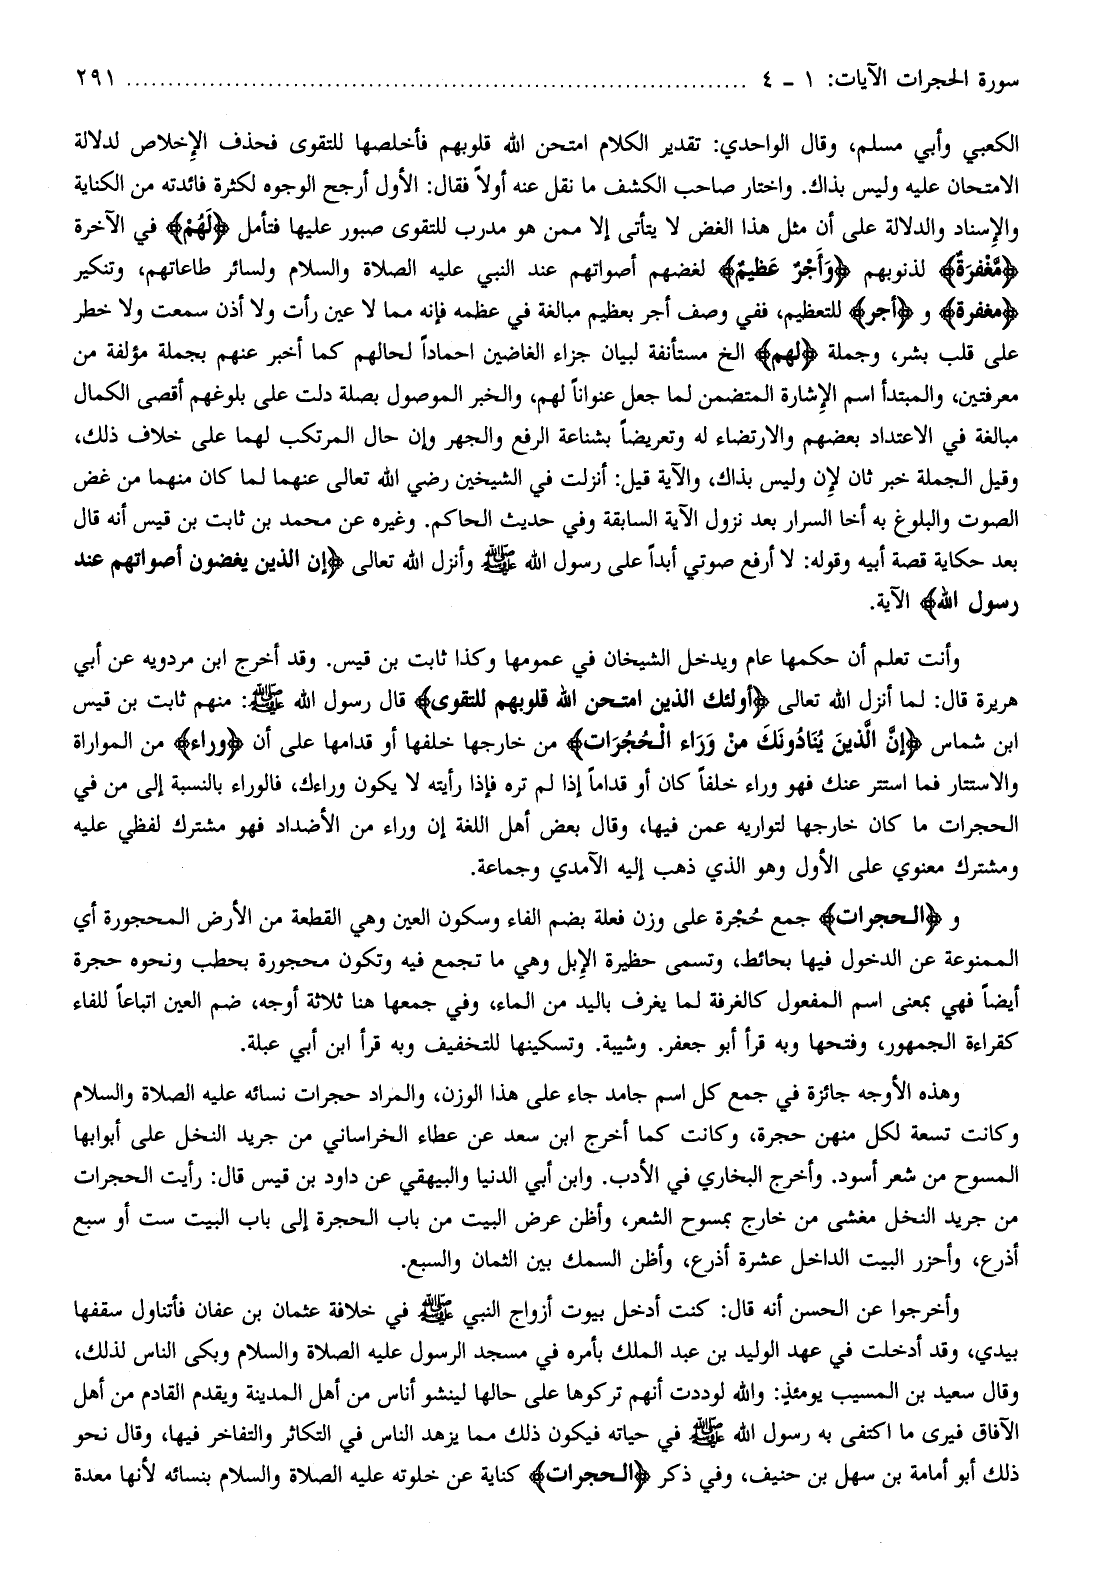 سورة الحجرات الآيات: ١ - ٤ ........................................ ٢٩١
الكعبي وأبي مسلم، وقال الواحدي: تقدير الكلام امتحن الله قلوبهم فأخلصها للتقوى فحذف الإخلاص لدلالة
الامتحان عليه وليس بذاك. واختار صاحب الكشف ما نقل عنه أولاً فقال: الأول أرجح الوجوه لكثرة فائدته من الكناية
والإسناد والدلالة على أن مثل هذا الغض لا يتأتى إلا ممن هو مدرب للتقوى صبور عليها فتأمل ﴿لَهُمْ﴾ في الآخرة
﴿مَّغْفِرَةٌ﴾ لذنوبهم ﴿وَأَجْرٌ عَظِيمٌ﴾ لغضهم أصواتهم عند النبي عليه الصلاة والسلام ولسائر طاعاتهم، وتنكير
﴿مغفرة﴾ و ﴿أجر﴾ للتعظيم، ففي وصف أجر بعظيم مبالغة في عظمه فإنه مما لا عين رأت ولا أذن سمعت ولا خطر
على قلب بشر، وجملة ﴿لهم﴾ الخ مستأنفة لبيان جزاء الغاضين احماداً لحالهم كما أخبر عنهم بجملة مؤلفة من
معرفتين، والمبتدأ اسم الإشارة المتضمن لما جعل عنواناً لهم، والخبر الموصول بصلة دلت على بلوغهم أقصى الكمال
مبالغة في الاعتداد بعضهم والارتضاء له وتعريضاً بشناعة الرفع والجهر وإن حال المرتكب لهما على خلاف ذلك،
وقيل الجملة خبر ثان لإن وليس بذاك، والآية قيل: أنزلت في الشيخين رضي الله تعالى عنهما لما كان منهما من غض
الصوت والبلوغ به أخا السرار بعد نزول الآية السابقة وفي حديث الحاكم. وغيره عن محمد بن ثابت بن قيس أنه قال
بعد حكاية قصة أبيه وقوله: لا أرفع صوتي أبداً على رسول الله ﷺ وأنزل الله تعالى ﴿إن الذين يغضون أصواتهم عند
رسول الله﴾ الآية.
وأنت تعلم أن حكمها عام ويدخل الشيخان في عمومها وكذا ثابت بن قيس. وقد أخرج ابن مردويه عن أبي
هريرة قال: لما أنزل الله تعالى ﴿أولئك الذين امتحن الله قلوبهم للتقوى﴾ قال رسول الله ﷺ: منهم ثابت بن قيس
ابن شماس ﴿إِنَّ الَّذِينَ يُنَادُونَكَ مِنْ وَرَاءِ الْحُجُرَاتِ﴾ من خارجها خلفها أو قدامها على أن ﴿وراء﴾ من المواراة
والاستتار فما استتر عنك فهو وراء خلفاً كان أو قداماً إذا لم تره فإذا رأيته لا يكون وراءك، فالوراء بالنسبة إلى من في
الحجرات ما كان خارجها لتواريه عمن فيها، وقال بعض أهل اللغة إن وراء من الأضداد فهو مشترك لفظي عليه
ومشترك معنوي على الأول وهو الذي ذهب إليه الآمدي وجماعة.
و ﴿الحجرات﴾ جمع حُجْرة على وزن فعلة بضم الفاء وسكون العين وهي القطعة من الأرض المحجورة أي
الممنوعة عن الدخول فيها بحائط، وتسمى حظيرة الإبل وهي ما تجمع فيه وتكون محجورة بحطب ونحوه حجرة
أيضاً فهي بمعنى اسم المفعول كالغرفة لما يغرف باليد من الماء، وفي جمعها هنا ثلاثة أوجه، ضم العين اتباعاً للفاء
كقراءة الجمهور، وفتحها وبه قرأ أبو جعفر. وشيبة. وتسكينها للتخفيف وبه قرأ ابن أبي عبلة.
وهذه الأوجه جائزة في جمع كل اسم جامد جاء على هذا الوزن، والمراد حجرات نسائه عليه الصلاة والسلام
وكانت تسعة لكل منهن حجرة، وكانت كما أخرج ابن سعد عن عطاء الخراساني من جريد النخل على أبوابها
المسوح من شعر أسود. وأخرج البخاري في الأدب. وابن أبي الدنيا والبيهقي عن داود بن قيس قال: رأيت الحجرات
من جريد النخل مغشى من خارج بمسوح الشعر، وأظن عرض البيت من باب الحجرة إلى باب البيت ست أو سبع
أذرع، وأحزر البيت الداخل عشرة أذرع، وأظن السمك بين الثمان والسبع.
وأخرجوا عن الحسن أنه قال: كنت أدخل بيوت أزواج النبي ﷺ في خلافة عثمان بن عفان فأتناول سقفها
بيدي، وقد أدخلت في عهد الوليد بن عبد الملك بأمره في مسجد الرسول عليه الصلاة والسلام وبكى الناس لذلك،
وقال سعيد بن المسيب يومئذٍ: والله لوددت أنهم تركوها على حالها لينشو أناس من أهل المدينة ويقدم القادم من أهل
الآفاق فيرى ما اكتفى به رسول الله ﷺ في حياته فيكون ذلك مما يزهد الناس في التكاثر والتفاخر فيها، وقال نحو
ذلك أبو أمامة بن سهل بن حنيف، وفي ذكر ﴿الحجرات﴾ كناية عن خلوته عليه الصلاة والسلام بنسائه لأنها معدة